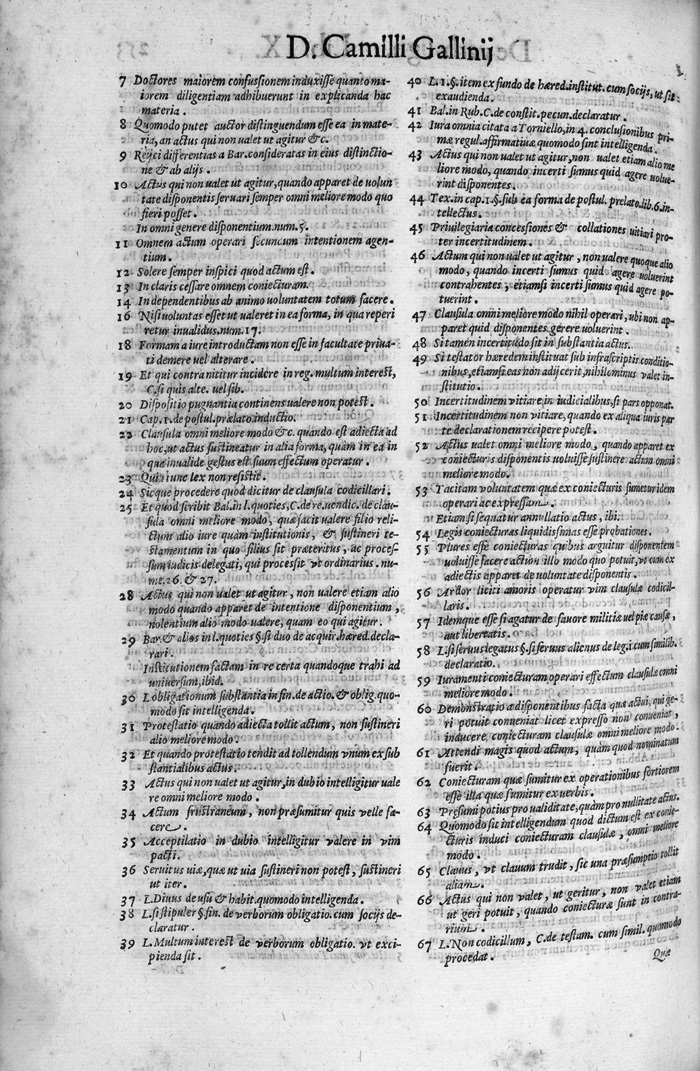 D. Camilli Gallinij
7 Doctores maiorem confussionem induxisse quanto ma-
iorem diligentiam adhibuerunt in explicanda hac
materia.
8 Quomodo putet auctor distinguendum esse ea in mate-
ria, an actus qui non valet ut agitur &c.
9 Reijci differentias a Bar. consideratas in eius distinctio-
ne & ab alijs.
10 Actus qui non valet ut agitur, quando apparet de volun
tate disponentis servari semper omni meliore modo quo
fieri posset.
In omni genere disponentium. num. 5.
11 Omnem actum operari secundum intentionem agen-
tium.
12 Solere semper inspici quod actum est.
13 In claris cessare omnem coniecturam.
14 In dependentibus ab animo voluntatem totum facere.
16 Nisi voluntas esset ut valeret in ea forma, in qua reperi
retur invalidus. num. 17.
18 Formam a iure introductam non esse in facultate priua-
ti demere vel alterare.
19 Et qui contra nititur incidere in reg. multum interest,
C. si quis alte. vel sib.
20 Dispositio pugnantia continens valere non potest.
21 Cap. 1. de postul. prælato. inductio.
22 Clausula omni meliore modo &c. quando est adiecta ad
hoc, ut actus sustineatur in alia forma, quàm in ea in
qua invalide gestus est suum effectum operatur.
23 Quia iune lex non resistit.
24 Sicque procedere quod dicitur de clausula codicillari.
25 Et quod scribit Bal. in l. quoties, C. de re. uendic. de clau-
sula omni meliore modo, quæ facit valere filio reli-
ctum alio iure quàm institutionis, & sustineri te-
stamentum in quo filius sit præteritus, ac proces-
sum iudicis delegati, qui processit vt ordinarius. nu-
me. 26. & 27.
28 Actus qui non valet ut agitur, non valere etiam alio
modo quando apparet de intentione disponentium,
nolentium alio modo valere, quam eo qui agitur.
29 Bar. & alios in l. quoties §. si duo de acquir. hæred. decla-
rari.
Institutionem factam in re certa quandoque trahi ad
universum, ibid.
30 L. obligationum substantia in fin. de actio. & oblig. quo-
modo sit intelligenda.
31 Protestatio quando adiecta tollit actum, non sustineri
alio meliore modo.
32 Et quando protestatio tendit ad tollendum vnum ex sub
stantialibus actus.
33 Actus qui non valet ut agitur, in dubio intelligitur vale
re omni meliore modo.
34 Actum frustraneum, non præsumitur quis velle fa-
cere.
35 Acceptilatio in dubio intelligitur valere in vim
pacti.
36 Servitus uiæ, quæ ut uia sustineri non potest, sustineri
ut iter.
37 L. Divus de usu & habit. quomodo intelligenda.
38 L. si stipuler §. fin. de verborum obligatio. cum socijs de-
claratur.
39 L. Multum interest de verborum obligatio. vt exci-
pienda sit.
40 L. 1. §. item ex fundo de hæred. institut. cum socijs, ut sit
exaudienda.
41 Bal. in Rub. C. de constit. pecun. declaratur.
42 Iura omnia citata a Torniello, in 4. conclusionibus pri-
mæ regul. affirmativæ quomodo sint intelligenda.
43 Actus qui non valet ut agitur, non valet etiam alio me
liore modo, quando incerti sumus quid agere volue-
rint disponentes.
44 Tex. in cap. 1. §. sub ea forma de postul. prelato. lib. 6. in-
tellectus.
45 Priuilegiaria concessiones & collationes vitiari pro-
ter incertitudinem.
46 Actum qui non valet ut agitur, non valere quoque alio
modo, quando incerti sumus quid agere voluerint
contrahentes, etiamsi incerti sumus quid agere po-
tuerint.
47 Clausula omni meliore modo nihil operari, ubi non ap-
paret quid disponentes gerere voluerint.
48 Si tamen incertitudo sit in substantia actus.
49 Si testator hæredem instituat sub infrascriptis conditio-
nibus, etiamsi eas non adijcerit, nihilominus valet in-
stitutio.
50 Incertitudinem vitiare, in iudicialibus, si pars opponat.
51 Incertitudinem non vitiare, quando ex aliqua iuris par
te declarationem recipere potest.
52 Actus valet omni meliore modo, quando apparet ex
coniecturis disponentis voluisse sustinere actum omni
meliore modo.
53 Tacitam voluntatem quæ ex coniecturis sumetur idem
operari ac expressam.
Etiam si sequatur annullatio actus, ibi.
54 Legis coniecturas liquidissimas esse probationes.
55 Plures esse coniecturas quibus arguitur disponentem
voluisse facere actum illo modo quo potuit, vt cum ex
adiectis apparet de voluntate disponentis.
56 Ardor liciti amoris operatur vim clausulæ codicil-
laris.
57 Idemque esse si agatur de favore militiæ vel piæ causæ,
aut libertatis.
58 L. si servus legatus §. si servus alienus de leg. 1 cum simili b.
declaratio.
59 Iuramenti coniecturam operari effectum clausulæ omni
meliore modo.
60 Demonstratio a disponentibus facta quæ actui, qui ge-
ri potuit conveniat licet expresso non conveniat,
inducere coniecturam clausulæ omni meliore modo.
61 Attendi magis quod actum, quàm quod nominatum
fuerit.
62 Coniecturam quæ sumitur ex operationibus fortiorem
esse illa quæ sumitur ex verbis.
63 Præsumi potius pro validitate, quàm pro nullitate actus.
64 Quomodo sit intelligendum quod dictum est ex conie-
cturis induci coniecturam clausulæ, omni meliore
modo.
65 Clavus, vt clavum trudit, sit una præsumptio tollit
aliam.
66 Actus qui non valet, ut geritur, non valet etiam
ut geri potuit, quando coniecturæ sunt in contra-
rium.
67 L. Non codicillum, C. de testam. cum simil. quomodo
procedat.
Quæ